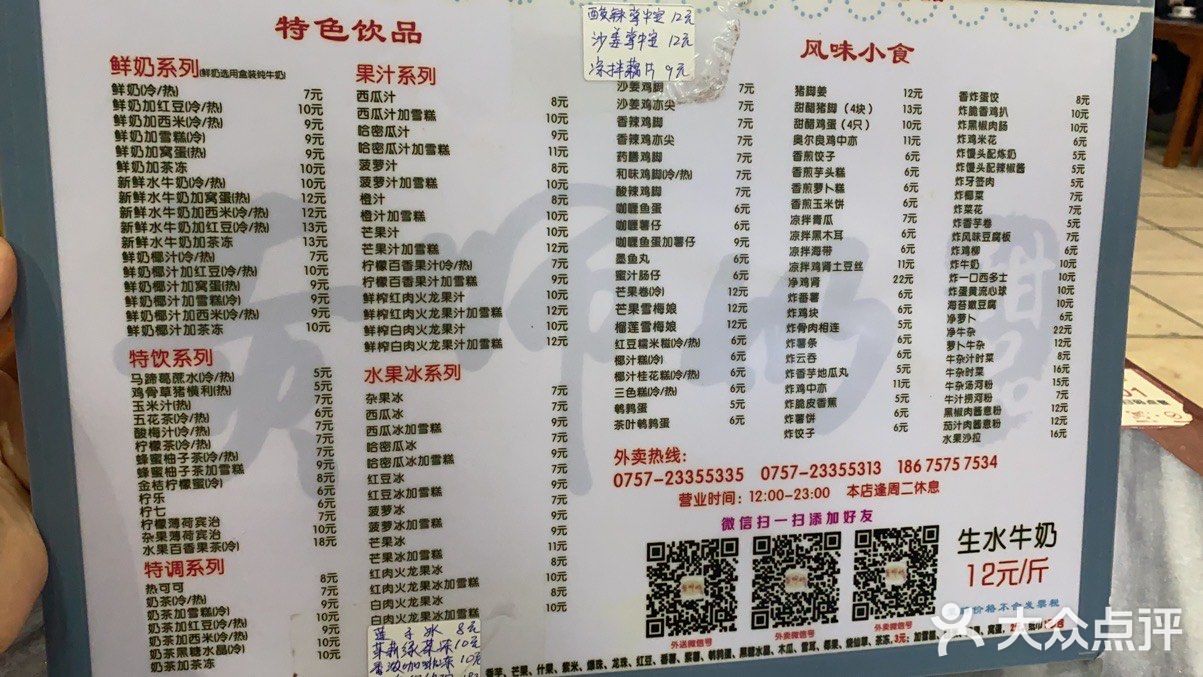 特色饮品
鲜奶系列(鲜奶选用盒装纯牛奶)
鲜奶(冷/热) 7元
鲜奶加红豆(冷/热) 10元
鲜奶加西米(冷/热) 9元
鲜奶加雪糕(冷) 9元
鲜奶加窝蛋(热) 9元
鲜奶加茶冻 10元
新鲜水牛奶(冷/热) 10元
新鲜水牛奶加窝蛋(热) 12元
新鲜水牛奶加西米(冷/热) 12元
新鲜水牛奶加红豆(冷/热) 13元
新鲜水牛奶加茶冻 13元
鲜奶椰汁(冷/热) 7元
鲜奶椰汁加红豆(冷/热) 10元
鲜奶椰汁加窝蛋(热) 9元
鲜奶椰汁加雪糕(冷) 9元
鲜奶椰汁加西米(冷/热) 9元
鲜奶椰汁加茶冻 10元
特饮系列
马蹄葛蔗水(冷/热) 5元
鸡骨草猪横利(热) 5元
玉米汁(热) 7元
五花茶(冷/热) 6元
酸梅汁(冷/热) 7元
柠檬茶(冷/热) 7元
蜂蜜柚子茶(冷/热)
蜂蜜柚子茶加雪糕
金桔柠檬蜜(冷)
柠乐
柠七
柠檬薄荷宾治
杂果薄荷宾治 10元
水果百香果茶(冷) 18元
特调系列
热可可 8元
奶茶(冷/热) 7元
奶茶加雪糕(冷)
奶茶加红豆(冷/热)
奶茶加西米(冷/热)
奶茶黑糖水晶(冷)
奶茶加茶冻 10元
果汁系列
西瓜汁 8元
西瓜汁加雪糕 10元
哈密瓜汁 9元
哈密瓜汁加雪糕 11元
菠萝汁 8元
菠萝汁加雪糕 10元
橙汁 8元
橙汁加雪糕 10元
芒果汁 10元
芒果汁加雪糕 12元
柠檬百香果汁(冷/热) 7元
柠檬百香果汁加雪糕 9元
鲜榨红肉火龙果汁 10元
鲜榨红肉火龙果汁加雪糕 12元
鲜榨白肉火龙果汁 10元
鲜榨白肉火龙果汁加雪糕 12元
水果冰系列
杂果冰 7元
西瓜冰 7元
西瓜冰加雪糕 9元
哈密瓜冰 7元
哈密瓜冰加雪糕 9元
红豆冰 7元
红豆冰加雪糕 9元
菠萝冰 7元
菠萝冰加雪糕 9元
芒果冰 9元
芒果冰加雪糕 11元
红肉火龙果冰 8元
红肉火龙果冰加雪糕 10元
白肉火龙果冰 8元
白肉火龙果冰加雪糕 10元
8元
10元
10元
12元
沙姜掌中宝 12元
凉拌藕片 9元
风味小食
沙姜鸡脚 7元
沙姜鸡亦尖 7元
香辣鸡脚 7元
香辣鸡亦尖 7元
药膳鸡脚 7元
和味鸡脚(冷/热) 7元
酸辣鸡脚 7元
咖喱鱼蛋 6元
咖喱薯仔 6元
咖喱鱼蛋加薯仔 9元
墨鱼丸 7元
蜜汁肠仔 6元
芒果卷(冷) 12元
芒果雪梅娘 12元
榴莲雪梅娘 12元
红豆糯米糍(冷/热) 6元
椰汁糕(冷) 6元
椰汁桂花糕(冷/热) 6元
三色糕(冷/热) 6元
鹌鹑蛋 5元
茶叶鹌鹑蛋 6元
猪脚姜 12元
甜醋猪脚（4块） 13元
甜醋鸡蛋（4只） 10元
奥尔良鸡中亦 11元
香煎饺子 6元
香煎芋头糕 6元
香煎萝卜糕 6元
香煎玉米饼 6元
凉拌青瓜 7元
凉拌黑木耳 6元
凉拌海带 6元
凉拌鸡肾土豆丝 11元
净鸡肾 22元
炸番薯 6元
炸鸡块 6元
炸骨肉相连 5元
炸薯条 6元
炸云吞 6元
炸香芋地瓜丸 5元
炸鸡中亦 11元
炸脆皮香蕉 5元
炸薯饼 6元
炸饺子 6元
香炸蛋饺 8元
炸脆香鸡扒 10元
炸黑椒肉肠 10元
炸鸡米花 6元
炸馒头配炼奶 5元
炸馒头配辣椒酱 5元
炸牙签肉 5元
炸椰菜 7元
炸菜花 7元
炸香芋卷 5元
炸风味豆腐板 7元
炸鸡柳 6元
炸牛奶 10元
炸一口西多士 10元
炸蛋黄流心球 10元
海苔嫩豆腐 10元
净萝卜 6元
净牛杂 22元
萝卜牛杂 12元
牛杂汁时菜 8元
牛杂时菜 16元
牛杂汤河粉 15元
牛汁捞河粉 7元
黑椒肉酱意粉 12元
茄汁肉酱意粉 12元
水果沙拉 16元
外卖热线：
0757-23355335 0757-23355313 18675757534
营业时间：12:00-23:00 本店逢周二休息
微信扫一扫添加好友
外送微信号
外卖微信号
外卖微信号
生水牛奶
12元/斤
价格不含发票税
大众点评